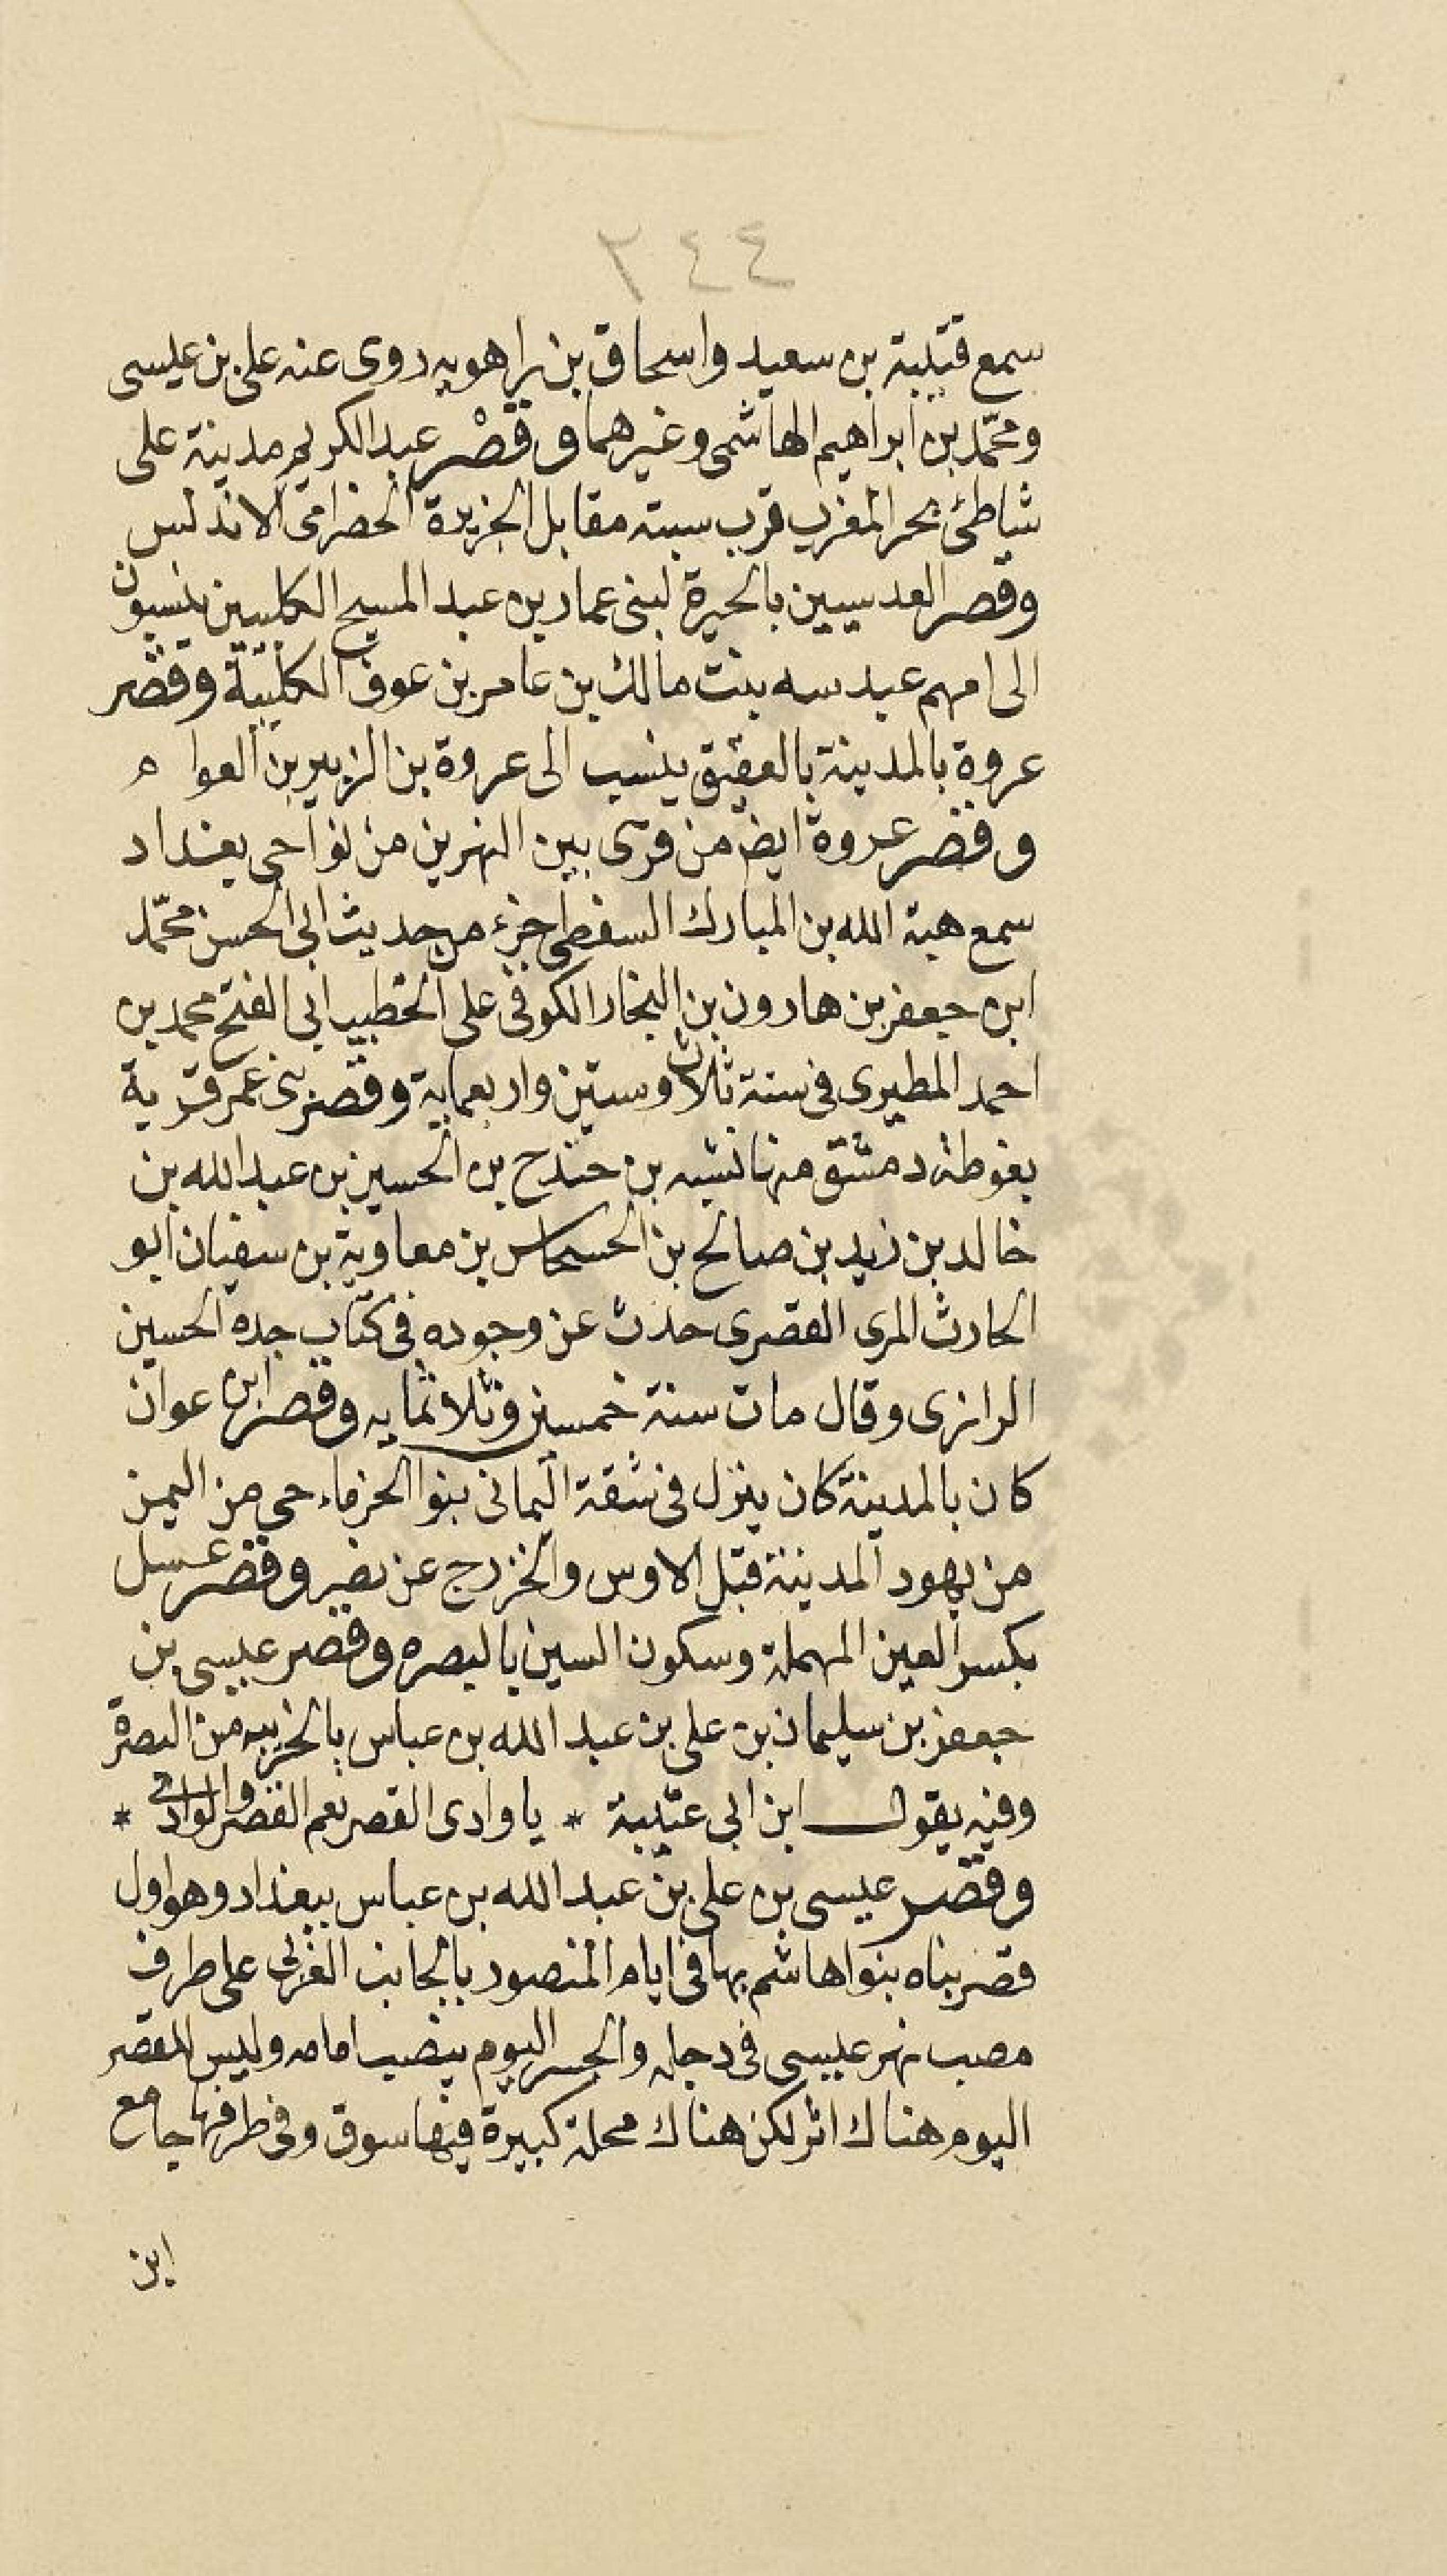 ٢٤٤
سمع قتيبة بن سعيد واسحاق بن راهويه روى عنه على بن عيسى
ومحمد بن ابراهيم الهاشمى وغيرهما وقصر عبد الكريم مدينة على
شاطئ بحر المغرب قرب سبته مقابل الجزيرة الخضرا من الاندلس
وقصر العدسيين بالحيرة لبنى عمار بن عبد المسيح الكلبيين ينسبون
الى امهم عدسه بنت مالك بن عامر بن عوف الكلبية وقصر
عروة بالمدينة بالعقيق ينسب الى عروة بن الزبير بن العوام
وقصر عروة ايض من قرى بين النهرين من نواحى بغداد
سمع هبة الله بن المبارك السقطى جزء من حديث ابى الحسن محمد
ابن جعفر بن هارون بن النجار الكوفى على الخطيب ابى الفتح محمد بن
احمد المطيرى فى سنة ثلاث وستين واربعماية وقصر بنى عمر قرية
بغوطة دمشق منها نشبه بن حندج بن الحسين بن عبد الله بن
خالد بن زيد بن صالح بن الحسحاس بن معاوية بن سفيان ابو
الحارث المرى القصرى حدث عن وجوده فى كتاب جده الحسين
الرازى وقال مات سنة خمسين وثلاثمايه وقصر ابن عوان
كان بالمدينة كان ينزل فى شقة اليمانى بنوا الجزماء حى من اليمن
من يهود المدينة قبل الاوس والخزرج عن نصر وقصر عسل
بكسر العين المهملة وسكون السين بالبصره وقصر عيسى بن
جعفر بن سليمان بن على بن عبد الله بن عباس بالخريبه من البصرة
وفيه يقول ابن ابى عتيبة * يا وادى القصر نعم القصر والوادى *
وقصر عيسى بن على بن عبد الله بن عباس ببغداد وهو اول
قصر بناه بنوا هاشم بها فى ايام المنصور بالجانب الغربى على طرف
مصب نهر عيسى فى دجله والجسر اليوم ينصب امامه وليس للقصر
اليوم هناك اثر لكن هناك محلة كبيرة فيها سوق وفى طرفها جامع
ابن